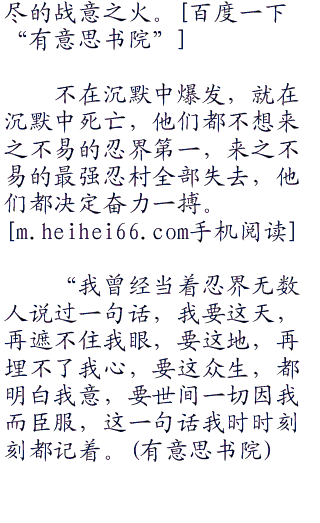 尽的战意之火。[百度一下
“有意思书院”]
不在沉默中爆发，就在
沉默中死亡，他们都不想来
之不易的忍界第一，来之不
易的最强忍村全部失去，他
们都决定奋力一搏。
[m.heihei66.com手机阅读]
“我曾经当着忍界无数
人说过一句话，我要这天，
再遮不住我眼，要这地，再
埋不了我心，要这众生，都
明白我意，要世间一切因我
而臣服，这一句话我时时刻
刻都记着。(有意思书院)